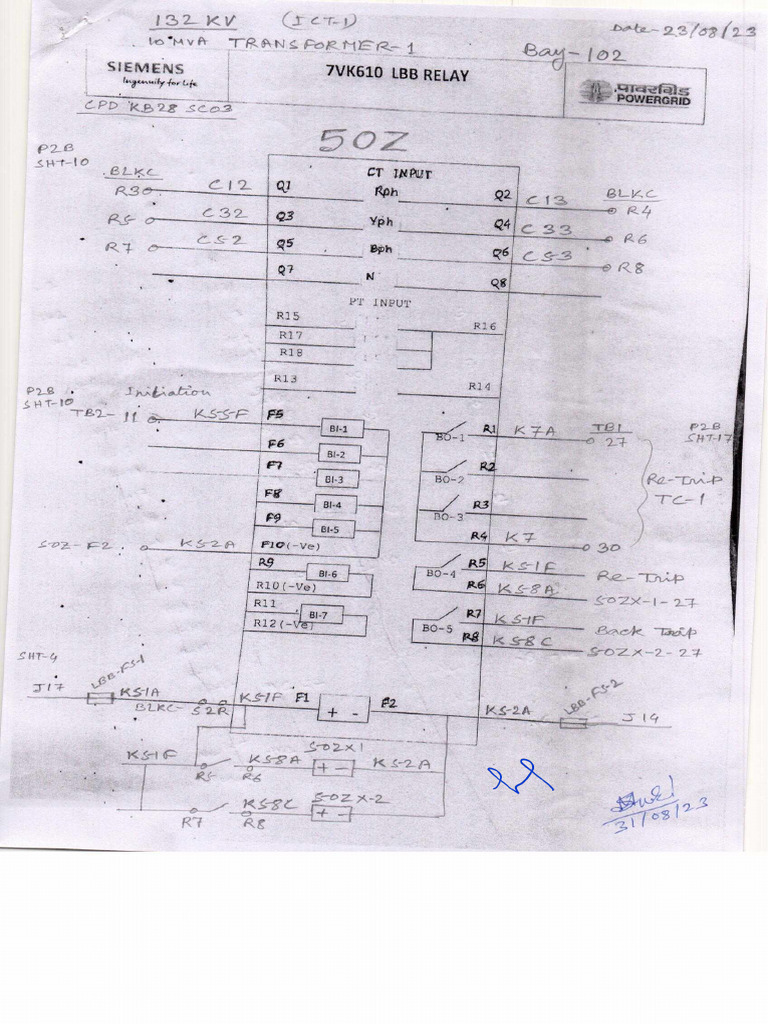 132 KV (ICT-1) Date-23/08/23
10 MVA TRANSFORMER-1 Bay-102
SIEMENS
Ingenuity for Life
7VK610 LBB RELAY
पावरग्रिड
POWERGRID
CPD KB28 SC03
50Z
P2B
SHT-10
CT INPUT
BLKC
R3 C12 Q1 Rph Q2 C13 BLKC
R4
R5 C32 Q3 Yph Q4 C33 R6
R7 C52 Q5 Bph Q6 C53 R8
Q7 N Q8
PT INPUT
R15 R16
R17
R18
R13 R14
P2B
SHT-10
Initiation
TB2-11 K55-F F5 BI-1 BO-1 R1 K7A TB1
27
P2B
SHT-17
F6 BI-2
F7 BI-3 BO-2 R2 Re-Trip
TC-1
F8 BI-4 BO-3 R3
F9 BI-5
50Z-F2 K52A F10(-Ve) R4 K7 30
R9 BI-6 BO-4 R5 K51F Re-Trip
R10(-Ve) R6 K58A 50ZX-1-27
R11 BI-7 BO-5 R7 K51F Back Trip
R12(-Ve) R8 K58C 50ZX-2-27
SHT-4
J17 LBB-FS-1 K51A K51F F1 + - F2 K5-2A LBB-FS-2 J14
BLKC-52R
K51F 50ZX1
R5 R6 K58A + - K5-2A
K58C 50ZX-2
R7 R8 + -
31/08/23